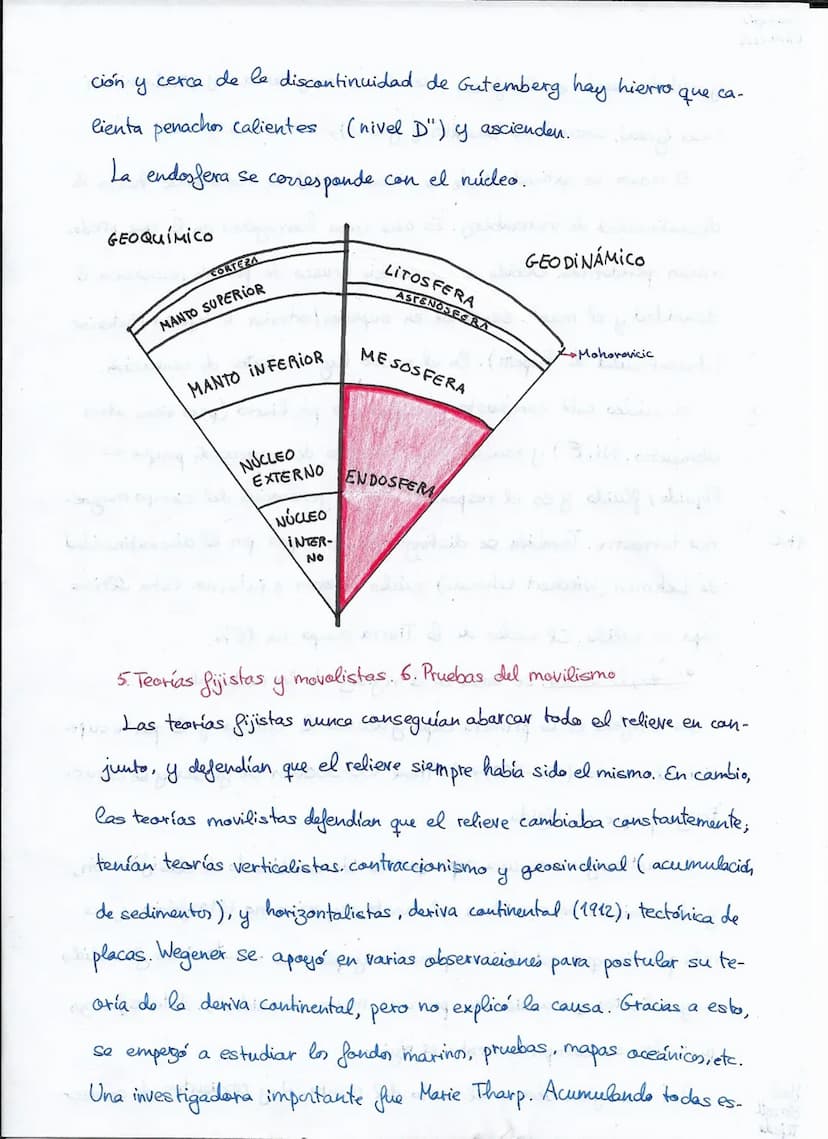 ción y cerca de la discontinuidad de Gutemberg hay hierro que ca-
lienta penachos calientes (nivel D") y ascienden.
La endosfera se corresponde con el núcleo.
GEOQUÍMICO
GEODINÁMICO
CORTEZA
MANTO SUPERIOR
LITOSFERA
ASTENOSFERA
Mohorovicic
MANTO INFERIOR
MESOSFERA
NÚCLEO
EXTERNO
ENDOSFERA
NÚCLEO
INTER-
NO
5. Teorías fijistas y movolistas. 6. Pruebas del movilismo
Las teorías fijistas nunca conseguían abarcar todo el relieve en con-
junto, y defendían que el relieve siempre había sido el mismo. En cambio,
las teorías movilistas defendían que el relieve cambiaba constantemente;
tenían teorías verticalistas: contraccionismo y geosinclinal (acumulación
de sedimentos), y horizontalistas, deriva continental (1912), tectónica de
placas. Wegener se apoyó en varias observaciones para postular su te-
oría de la deriva continental, pero no explicó la causa. Gracias a esto,
se empezó a estudiar los fondos marinos, pruebas, mapas oceánicos, etc.
Una investigadora importante fue Marie Tharp. Acumulando todas es-